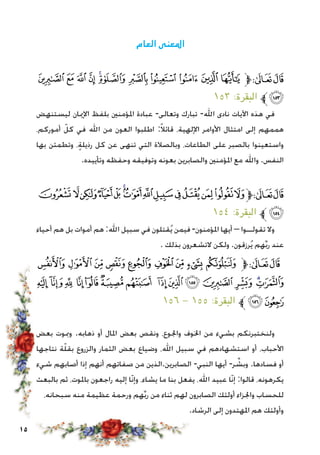 المعنى العام
قَالَ تَعَالَىٰ: ﴿ يَٰٓأَيُّهَا ٱلَّذِينَ ءَامَنُوا۟ ٱسْتَعِينُوا۟ بِٱلصَّبْرِ وَٱلصَّلَوٰةِ ۚ إِنَّ ٱللَّهَ مَعَ ٱلصَّٰبِرِينَ
﴿١٥٣﴾ ﴾ البقرة: ١٥٣
في هذه الآيات نادى الله- تبارك وتعالى- عباده المؤمنين بلفظ الإيمان ليستنهض
هممهم إلى امتثال الأوامر الإلهية، قائلاً: اطلبوا العون من الله في كلّ أموركم،
واستعينوا بالصبر على الطاعات، وبالصلاة التي تنهى عن كل رذيلةٍ، وتطمئن بها
النفس، والله مع المؤمنين والصابرين بعونه وتوفيقه وحفظه وتأييده.
قَالَ تَعَالَىٰ: ﴿ وَلَا تَقُولُوا۟ لِمَن يُقْتَلُ فِى سَبِيلِ ٱللَّهِ أَمْوَٰتٌۢ ۚ بَلْ أَحْيَآءٌ وَلَٰكِن لَّا تَشْعُرُونَ
﴿١٥٤﴾ ﴾ البقرة: ١٥٤
ولا تقولـــوا – أيها المؤمنون- فيمن يُقتلون في سبيل الله: هم أموات بل هم أحياء
عند ربّهم يُرزقون، ولكن لاتشعرون بذلك .
قَالَ تَعَالَىٰ: ﴿ وَلَنَبْلُوَنَّكُم بِشَىْءٍ مِّنَ ٱلْخَوْفِ وَٱلْجُوعِ وَنَقْصٍ مِّنَ ٱلْأَمْوَٰلِ وَٱلْأَنفُسِ
وَٱلثَّمَرَٰتِ ۗ وَبَشِّرِ ٱلصَّٰبِرِينَ ﴿١٥٥﴾ ٱلَّذِينَ إِذَآ أَصَٰبَتْهُم مُّصِيبَةٌ قَالُوٓا۟ إِنَّا لِلَّهِ وَإِنَّآ إِلَيْهِ
رَٰجِعُونَ ﴿١٥٦﴾ ﴾ البقرة: ١٥٥ – ١٥٦
ولنختبرنكم بشيء من الخوف والجوع، ونقص بعض المال أو ذهابه، وبموت بعض
الأحباب، أو استشهادهم في سبيل الله، وضياع بعض الثمار والزروع بقلّة نتاجها
أو فسادها، وبشّر- أيها النبي- الصابرين،الذين من صفاتهم أنهم إذا أصابهم شيء
يكرهونه، قالوا: إنّا عبيد الله، يفعل بنا ما يشاء، وإنّا إليه راجعون بالموت، ثم بالبعث
للحساب والجزاء أولئك الصابرون لهم ثناء من ربّهم ورحمة عظيمة منه سبحانه،
وأولئك هم المهتدون إلى الرشاد.
١٥